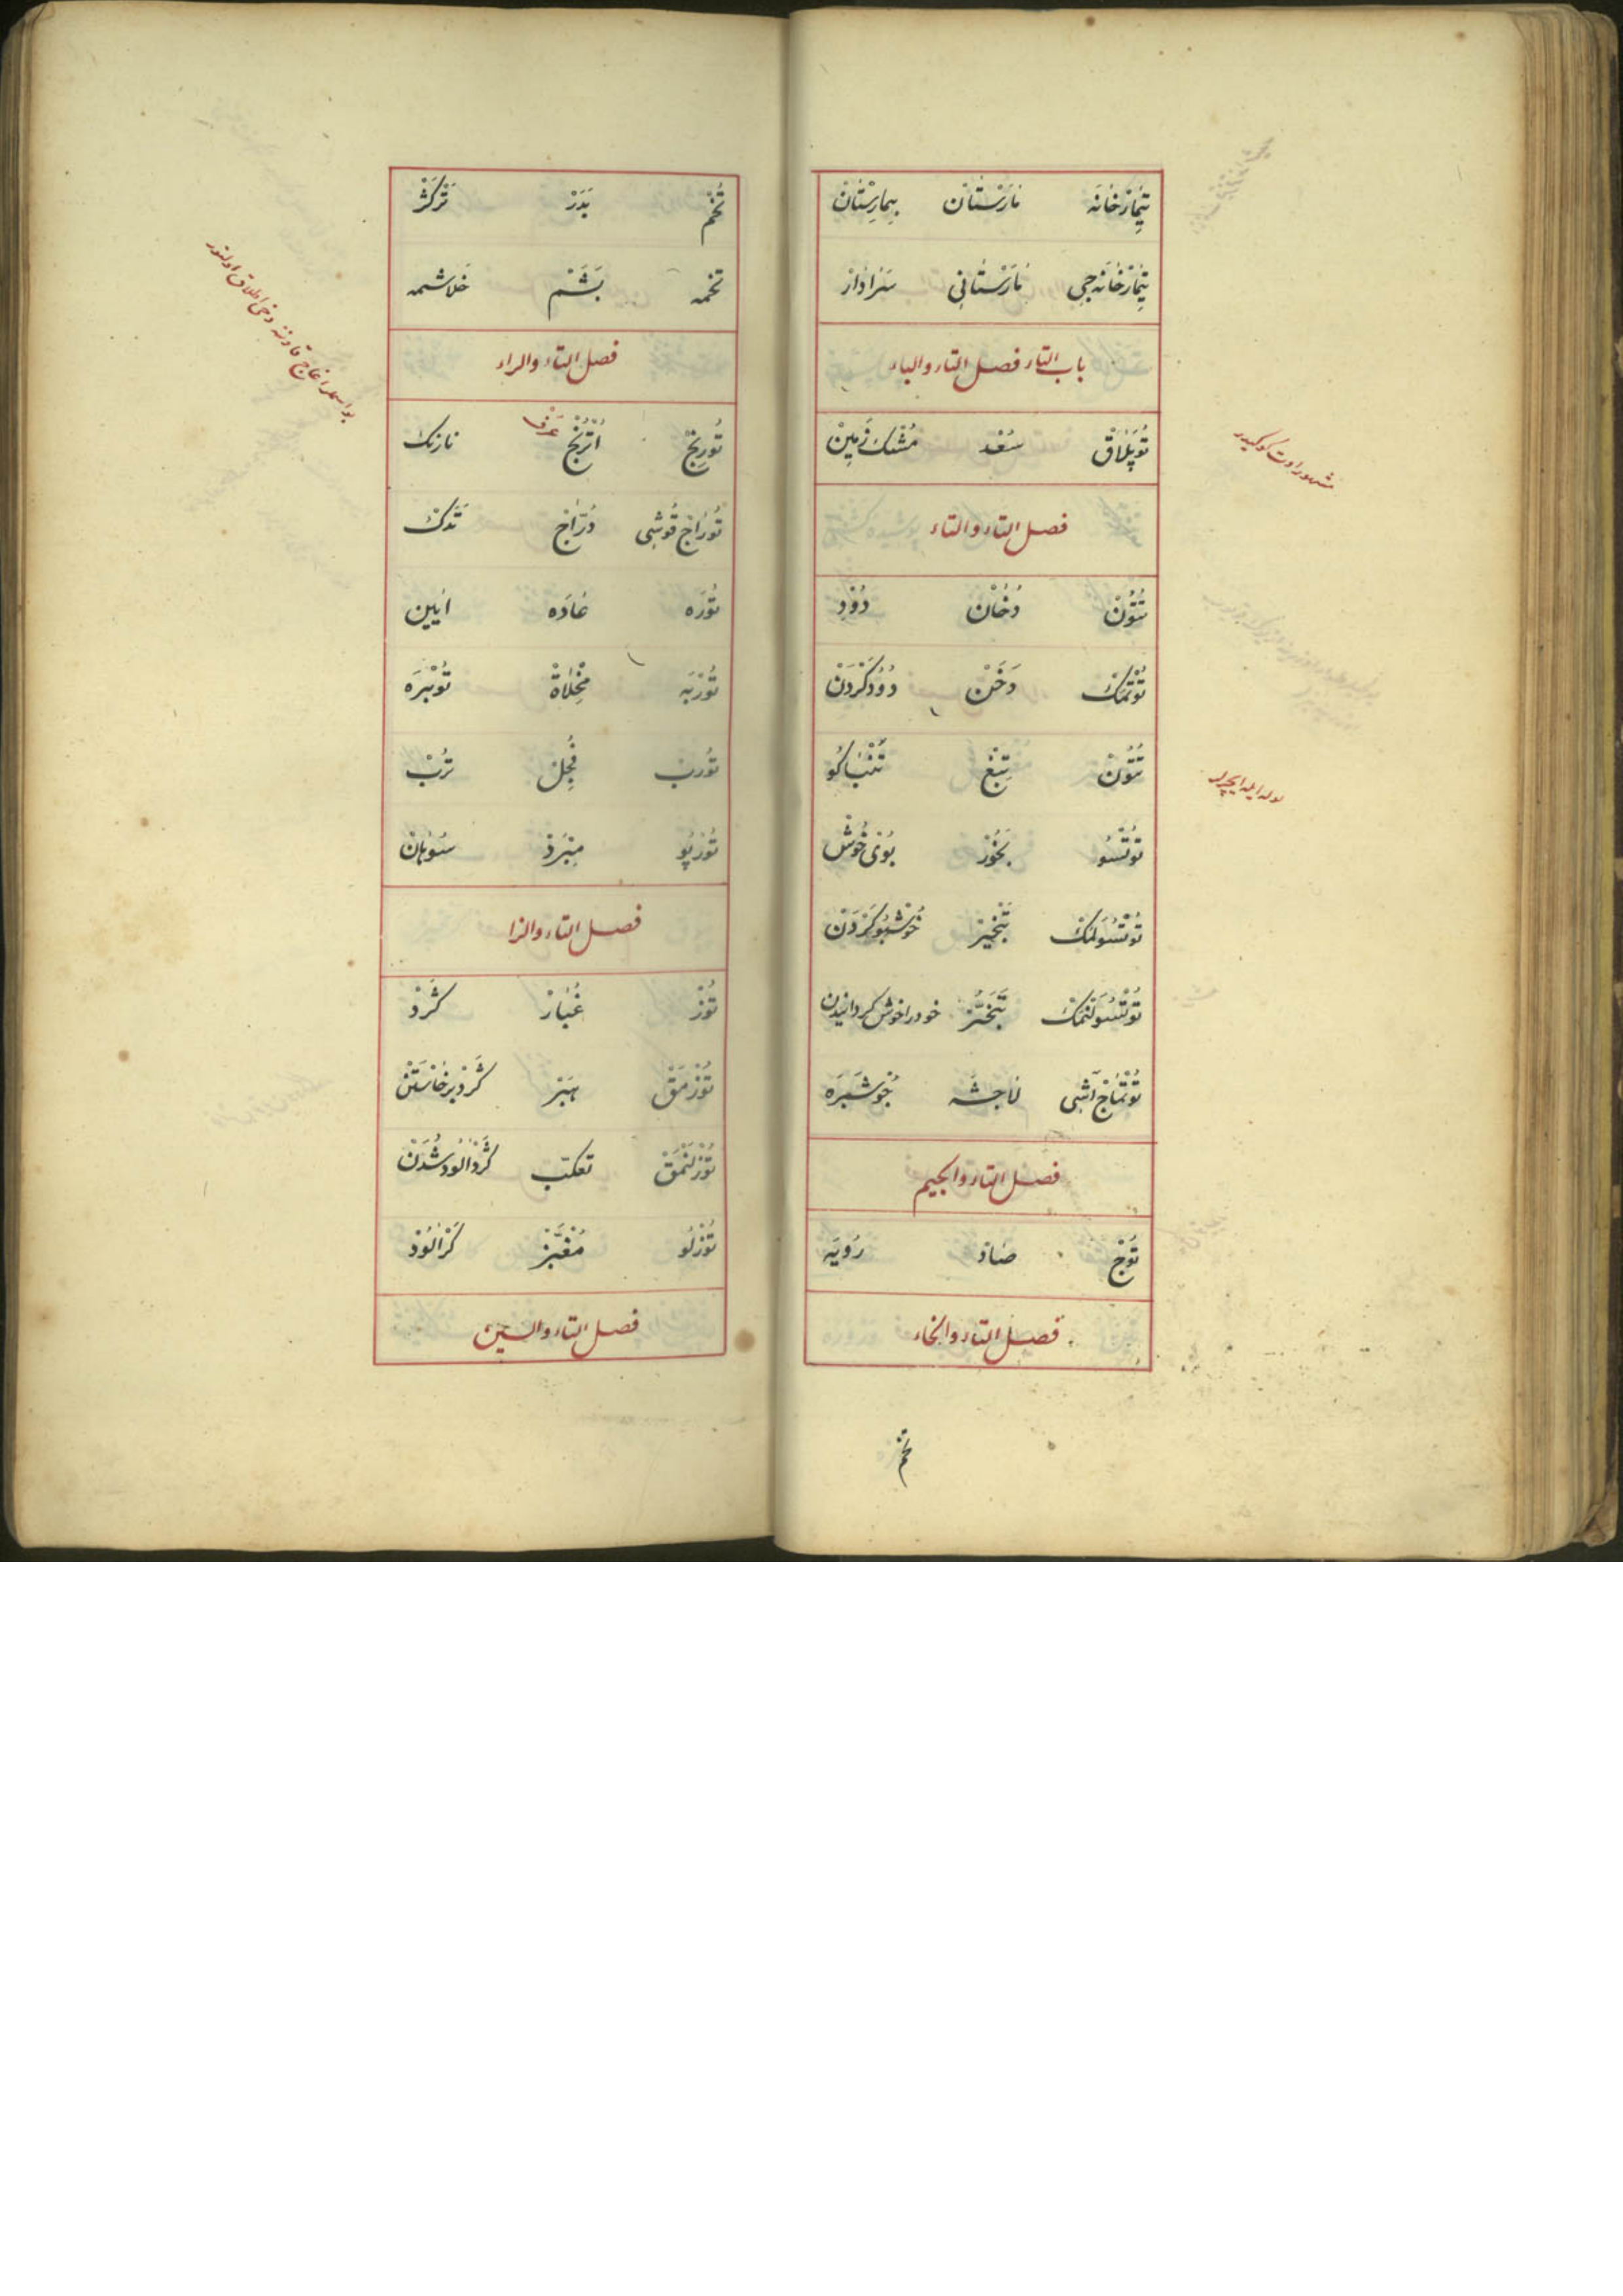 تِیمَارْخَانَه مَارَسْتَان بِیمَارِسْتَان
تِیمَارْخَانَه جِی مَارَسْتَانِی سَرَادَارْ
باب التاء فصل التاء والباء
تُوپَلَاقْ سُعْد مُشْكِ زَمِینْ
مشهور اوت كوكیدر
فصل التاء والتاء
تُتُونْ دُخَانْ دُودْ
تُوتْمَكْ دَخَنْ دُودْ كَرْدَنْ
تُتُونْ تِبْغْ تَنْبَاكُو
لوله ایله ایچرلر
تُوتْسُو بَخُورْ بُوی خُوشْ
تُوتْسُولَمَكْ تَبْخِیرْ خُوشْبُو كَرْدَنْ
تُوتْسُولَنْمَكْ تَبَخُّرْ خود را خوش كردانیدن
تُوتْمَاجْ آشِی لَاخشَه جُوشَبَرَه
فصل التاء والجیم
تُوجْ صَادْ رُویَه
فصل التاء والخاء
تخم
تُخْم بَذَرْ
تخمه بَشَمْ خلاشمه
فصل التاء والراء
تُورنجْ اُتْرُنْجْ عرف نارنك
بو اسملر اغاج قاوننه دخی اطلاق اولنور
تُورَاجْ قُوشِی دُرَّاجْ تَذَكْ
تُورَه عَادَه ایین
تُورْبَه مِخْلَاةْ تُوبْرَه
تُورب فُجِلْ تُرُبْ
تُورْپُو مِبْرَدْ سُوهَانْ
فصل التاء والزا
تُوزْ غُبَارْ كَرْدْ
تُوزْمَقْ هَبَرْ كَرْدْ بَرْخَاسْتَنْ
تُوزْلَنْمَقْ تعكب كَرْدْ الُود شُدَنْ
تُوزْلُو مُغَبَّرْ كَرْالُودْ
فصل التاء والسین